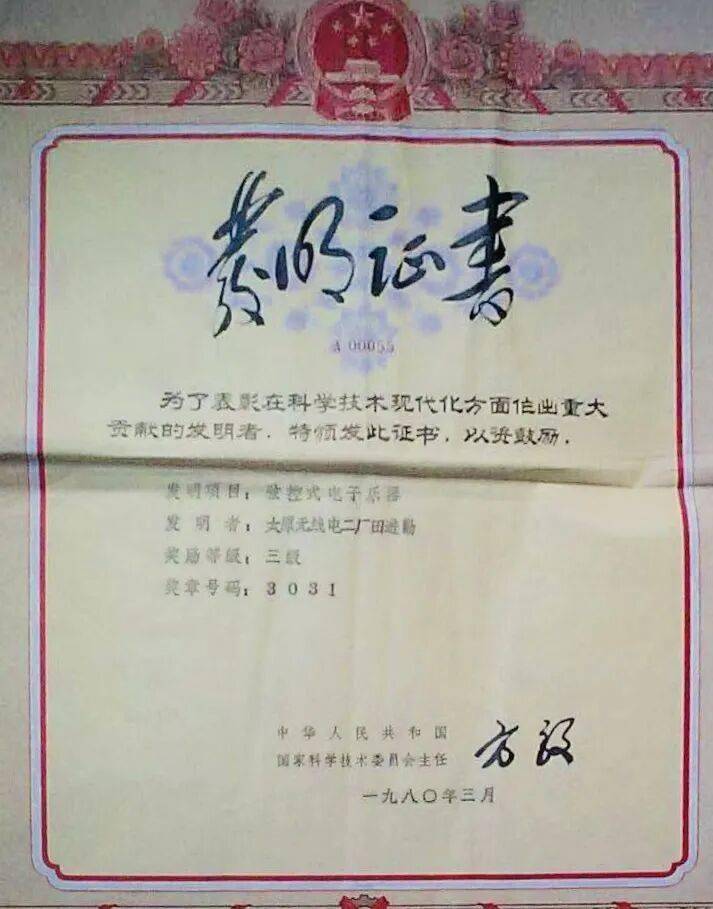 發明证書
A 00055
为了表彰在科学技术现代化方面作出重大
贡献的发明者，特颁发此证书，以资鼓励．
发明项目：弦控式电子乐器
发 明 者：太原无线电二厂田进勤
奖励等级：三级
奖章号码：3031
中华人民共和国
国家科学技术委员会主任
方毅
一九八〇年三月